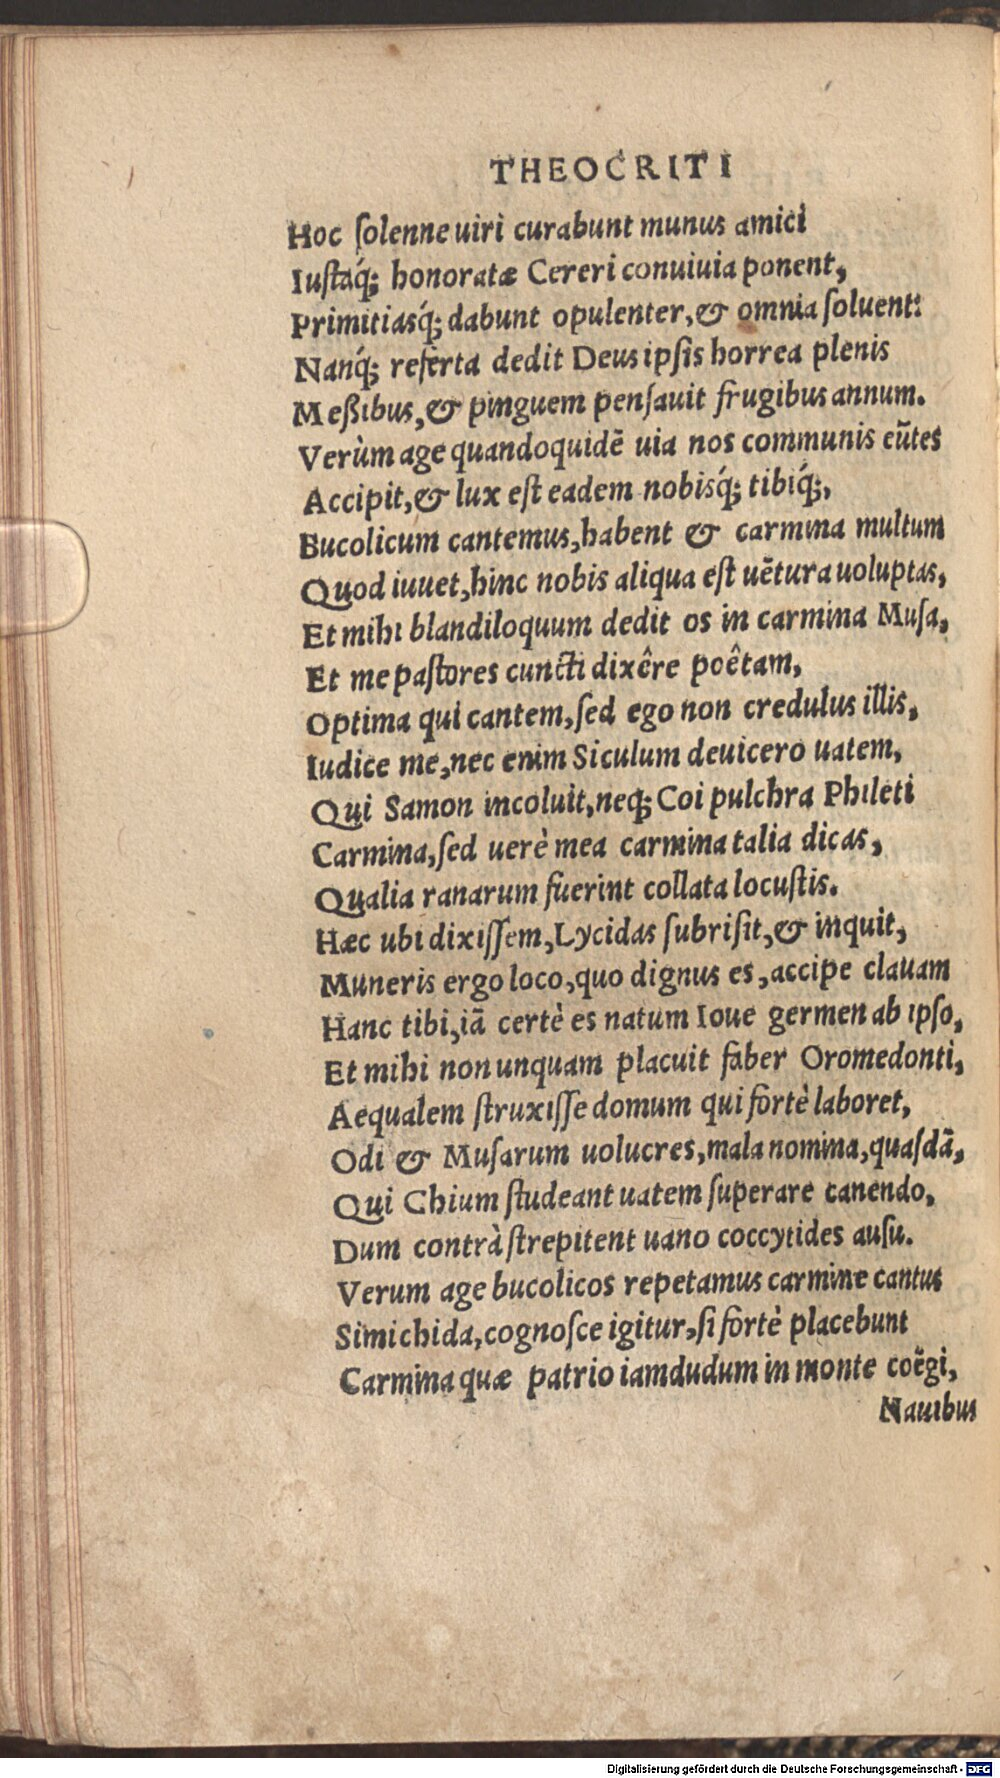 THEOCRITI
Hoc ſolenne uiri curabunt munus amici
Iuſtáq́; honoratæ Cereri conuiuia ponent,
Primitiasq́; dabunt opulenter, & omnia ſoluent:
Nanq́; referta dedit Deus ipſis horrea plenis
Meßibus, & pinguem penſauit frugibus annum.
Verùm age quandoquidē uia nos communis eũtes
Accipit, & lux eſt eadem nobisq́; tibiq́;,
Bucolicum cantemus, habent & carmina multum
Quod iuuet, hinc nobis aliqua eſt uētura uoluptas,
Et mihi blandiloquum dedit os in carmina Muſa,
Et me paſtores cuncti dixêre poêtam,
Optima qui cantem, ſed ego non credulus illis,
Iudice me, nec enim Siculum deuicero uatem,
Qui Samon incoluit, neq; Coi pulchra Phileti
Carmina, ſed uerè mea carmina talia dicas,
Qualia ranarum fuerint collata locuſtis.
Hæc ubi dixiſſem, Lycidas ſubriſit, & inquit,
Muneris ergo loco, quo dignus es, accipe clauam
Hanc tibi, iā certè es natum Ioue germen ab ipſo,
Et mihi non unquam placuit faber Oromedonti,
Aequalem ſtruxiſſe domum qui fortè laboret,
Odi & Muſarum uolucres, mala nomina, quaſdā,
Qui Chium ſtudeant uatem ſuperare canendo,
Dum contrà ſtrepitent uano coccytides auſu.
Verum age bucolicos repetamus carmine cantus
Simichida, cognoſce igitur, ſi fortè placebunt
Carmina quæ patrio iamdudum in monte coëgi,
Nauibus
Digitalisierung gefördert durch die Deutsche Forschungsgemeinschaft - DFG